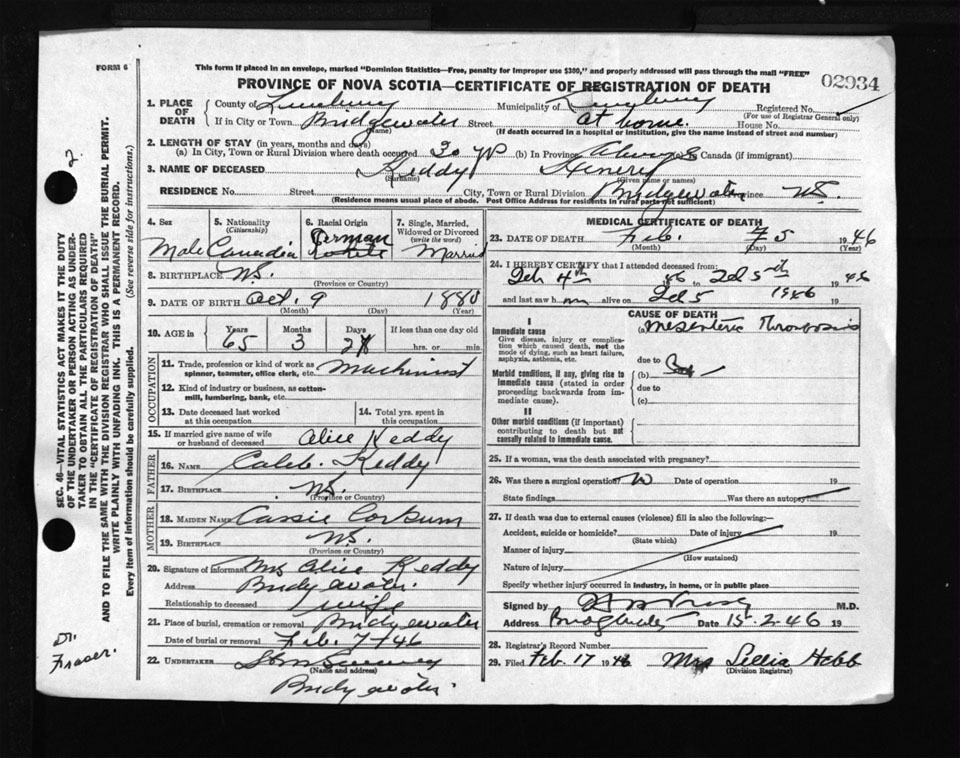 FORM 6
This form if placed in an envelope, marked "Dominion Statistics—Free, penalty for improper use $300," and properly addressed will pass through the mail "FREE"
PROVINCE OF NOVA SCOTIA—CERTIFICATE OF REGISTRATION OF DEATH
02934
SEC. 46—VITAL STATISTICS ACT MAKES IT THE DUTY
OF THE UNDERTAKER OR PERSON ACTING AS UNDER-
TAKER TO OBTAIN ALL THE PARTICULARS REQUIRED
IN THE "CERTIFICATE OF REGISTRATION OF DEATH"
AND TO FILE THE SAME WITH THE DIVISION REGISTRAR WHO SHALL ISSUE THE BURIAL PERMIT.
WRITE PLAINLY WITH UNFADING INK. THIS IS A PERMANENT RECORD.
Every item of information should be carefully supplied. (See reverse side for instructions.)
2
Dr.
Fraser.
1. PLACE OF DEATH County of Lunenburg Municipality of Lunenburg Registered No.
(For use of Registrar General only)
If in City or Town Bridgewater Street at home. House No.
(Name) (If death occurred in a hospital or institution, give the name instead of street and number)
2. LENGTH OF STAY (in years, months and days)
(a) In City, Town or Rural Division where death occurred 30 yrs (b) In Province Always Canada (if immigrant)
3. NAME OF DECEASED Keddy Henery
(Surname) (Given name or names)
RESIDENCE No. Street City, Town or Rural Division Bridgewater Province NS.
(Residence means usual place of abode. Post Office Address for residents in rural parts not sufficient)
4. Sex 5. Nationality (Citizenship) 6. Racial Origin 7. Single, Married, Widowed or Divorced (write the word)
Male Canadia German White Married
8. BIRTHPLACE NS.
(Province or Country)
9. DATE OF BIRTH Oct. 9 1880
(Month) (Day) (Year)
10. AGE in Years Months Days If less than one day old
65 3 hrs. or min.
OCCUPATION
11. Trade, profession or kind of work as spinner, teamster, office clerk, etc. Machinist
12. Kind of industry or business, as cotton-mill, lumbering, bank, etc.
13. Date deceased last worked at this occupation 14. Total yrs. spent in this occupation
15. If married give name of wife or husband of deceased Alice Keddy
FATHER
16. NAME Caleb. Keddy
17. BIRTHPLACE NS.
(Province or Country)
MOTHER
18. MAIDEN NAME Cassie Corkum
19. BIRTHPLACE NS.
(Province or Country)
20. Signature of informant Mrs Alice Keddy
Address Bridgewater.
Relationship to deceased wife
21. Place of burial, cremation or removal Bridgewater
Date of burial or removal Feb. 7-/46
22. UNDERTAKER Sweeney
(Name and address)
Bridgewater.
MEDICAL CERTIFICATE OF DEATH
23. DATE OF DEATH Feb. 5 1946
(Month) (Day)
24. I HEREBY CERTIFY that I attended deceased from:
Feb 4th 46 to Feb 5th 1946
and last saw him alive on Feb 5 1946 19
CAUSE OF DEATH
I
Immediate cause
Give disease, injury or complication which caused death, not the mode of dying, such as heart failure, asphyxia, asthenia, etc.
(a) Mesenteric Thrombosis
due to
Morbid conditions, if any, giving rise to immediate cause (stated in order proceeding backwards from immediate cause).
(b)
due to
(c)
II
Other morbid conditions (if important) contributing to death but not causally related to immediate cause.
25. If a woman, was the death associated with pregnancy?
26. Was there a surgical operation? Date of operation 19
State findings Was there an autopsy
27. If death was due to external causes (violence) fill in also the following:—
Accident, suicide or homicide? Date of injury 19
(State which)
Manner of injury
(How sustained)
Nature of injury
Specify whether injury occurred in industry, in home, or in public place
Signed by M.D.
Address Bridgewater Date 15-2-46 19
28. Registration Number
29. Filed Feb. 17 1946 Mrs Lillia Hebb
(Division Registrar)